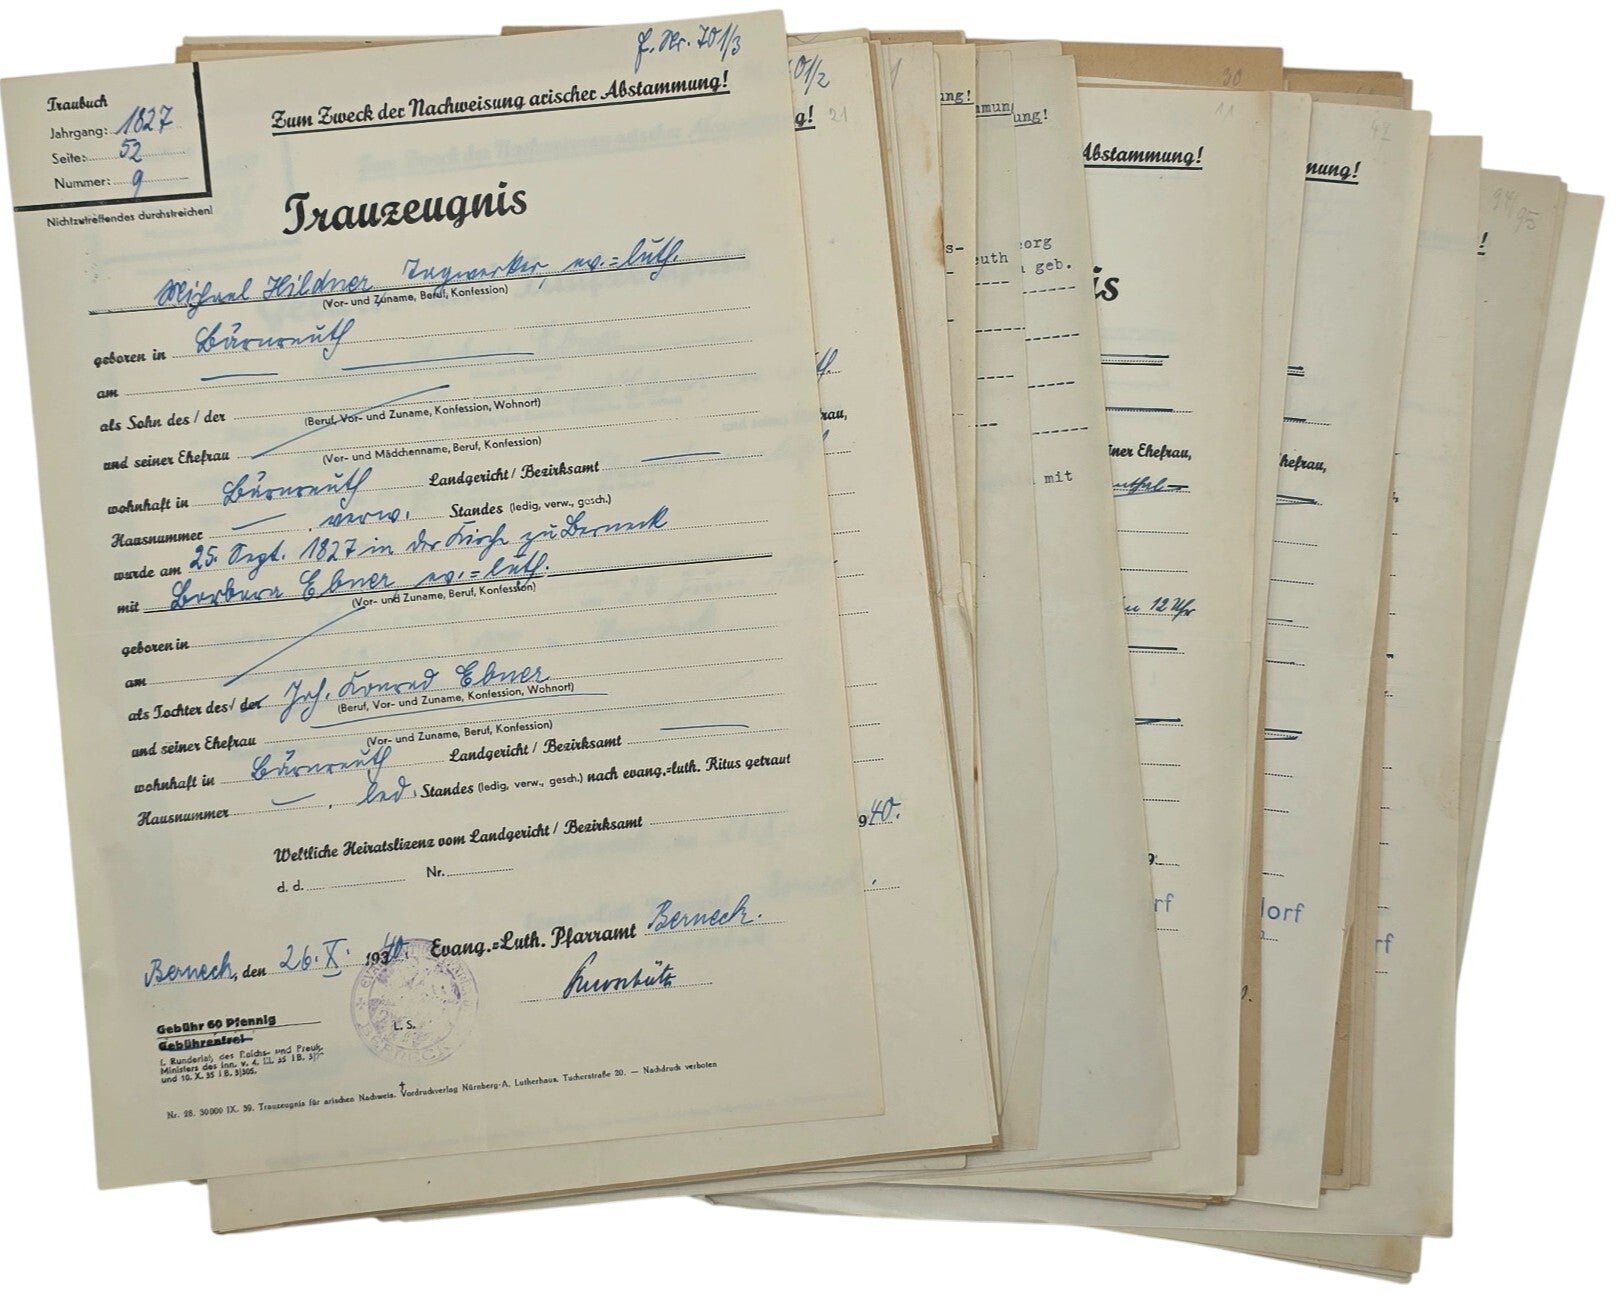 f. Nr. 701/3
Zum Zweck der Nachweisung arischer Abstammung!
Traubuch
Jahrgang: 1827
Seite: 52
Nummer: 9
Nichtzutreffendes durchstreichen!
Trauzeugnis
Michael Hildner, Tagwerker, ev.=luth.
(Vor- und Zuname, Beruf, Konfession)
geboren in Bärnreuth
am
als Sohn des / der
(Beruf, Vor- und Zuname, Konfession, Wohnort)
und seiner Ehefrau
(Vor- und Mädchenname, Beruf, Konfession)
wohnhaft in Bärnreuth Landgericht / Bezirksamt
Hausnummer , verw. Standes (ledig, verw., gesch.)
wurde am 25. Sept. 1827 in der Kirche zu Berneck
mit Barbara Ebner, ev.=luth.
(Vor- und Zuname, Beruf, Konfession)
geboren in
am
als Tochter des / der Joh. Konrad Ebner
(Beruf, Vor- und Zuname, Konfession, Wohnort)
und seiner Ehefrau
(Vor- und Zuname, Beruf, Konfession)
wohnhaft in Bärnreuth Landgericht / Bezirksamt
Hausnummer , led. Standes (ledig, verw., gesch.) nach evang.=luth. Ritus getraut
Weltliche Heiratslizenz vom Landgericht / Bezirksamt
d. d. Nr.
Berneck, den 26. X. 1940. Evang.=Luth. Pfarramt Berneck.
L. S.
Gebühr 60 Pfennig
Gebührenfrei
f. Runderlaß des Reichs- und Preuß.
Ministers des Inn. v. 4. III. 35 I B. 3/
und 10. X. 35 I B. 3/305.
Nr. 28. 30000 IX. 39. Trauzeugnis für arischen Nachweis. Vordruckverlag Nürnberg-A, Lutherhaus, Tucherstraße 20. — Nachdruck verboten
01/2
g!
21
rau,
940.
ung!
mmun
ung!
s-
euth
org
geb.
mit
30
11
Abstammung!
is
iner Ehefrau,
nthal
12 Uhr
9
rf
47
mung!
Ehefrau,
dorf
rf
94/95
!